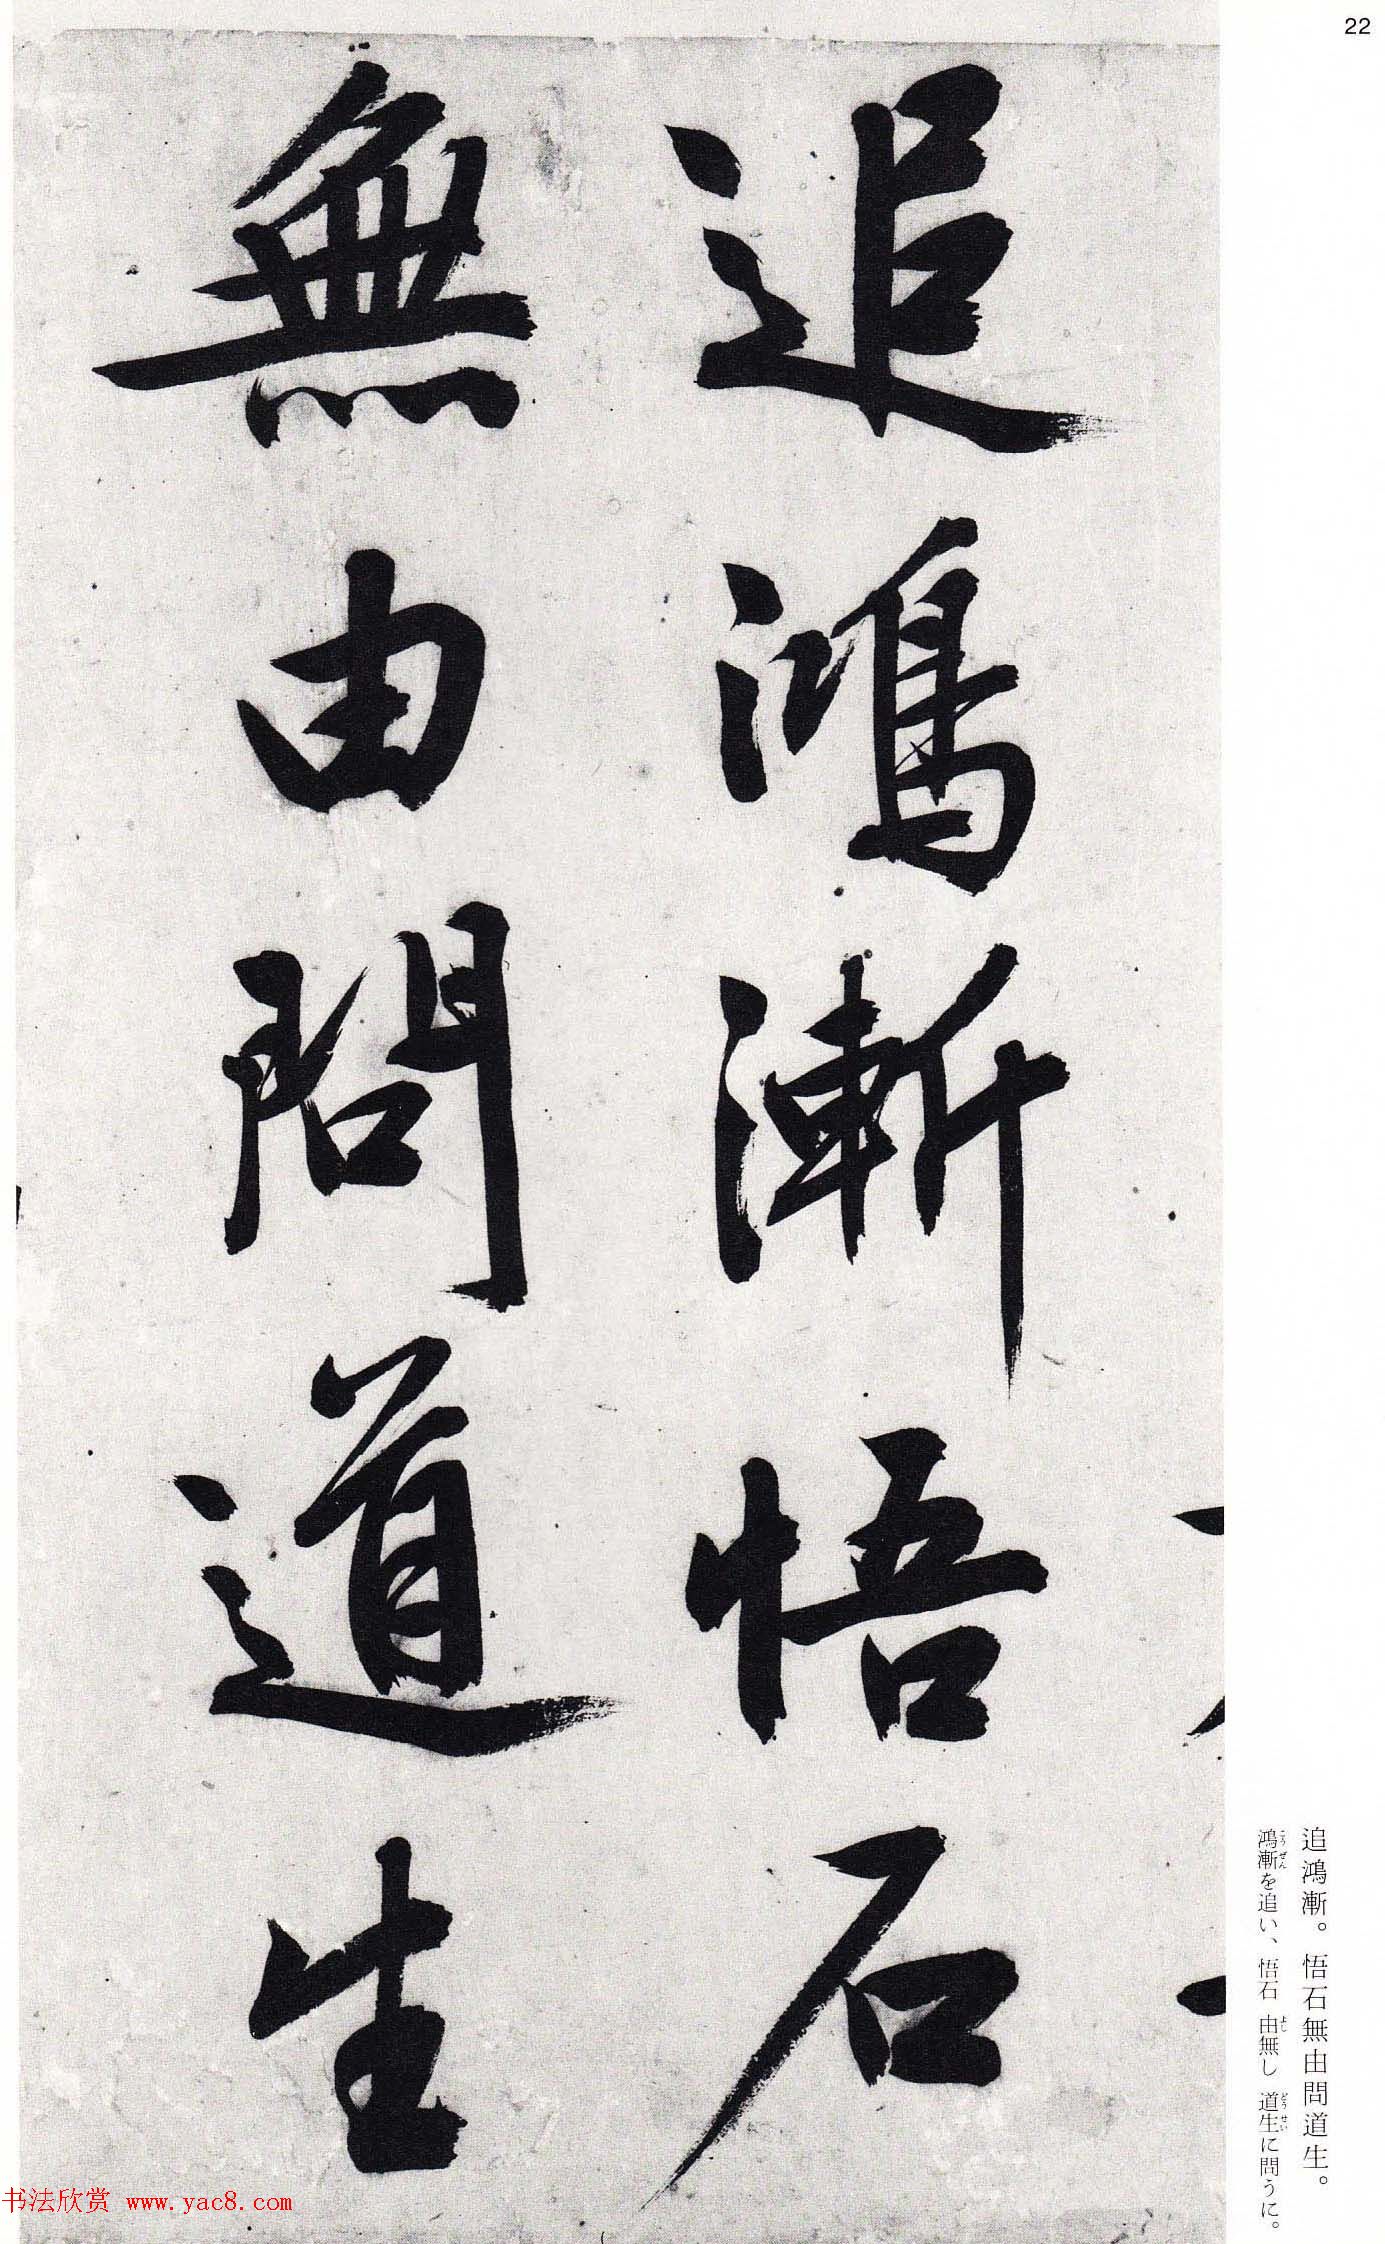 22
追鴻漸悟石
無由問道生
追鴻漸。悟石無由問道生。
鴻漸を追い、悟石 由無し 道生に問うに。
こうぜん
よし
どうせい
书法欣赏 www.yac8.com